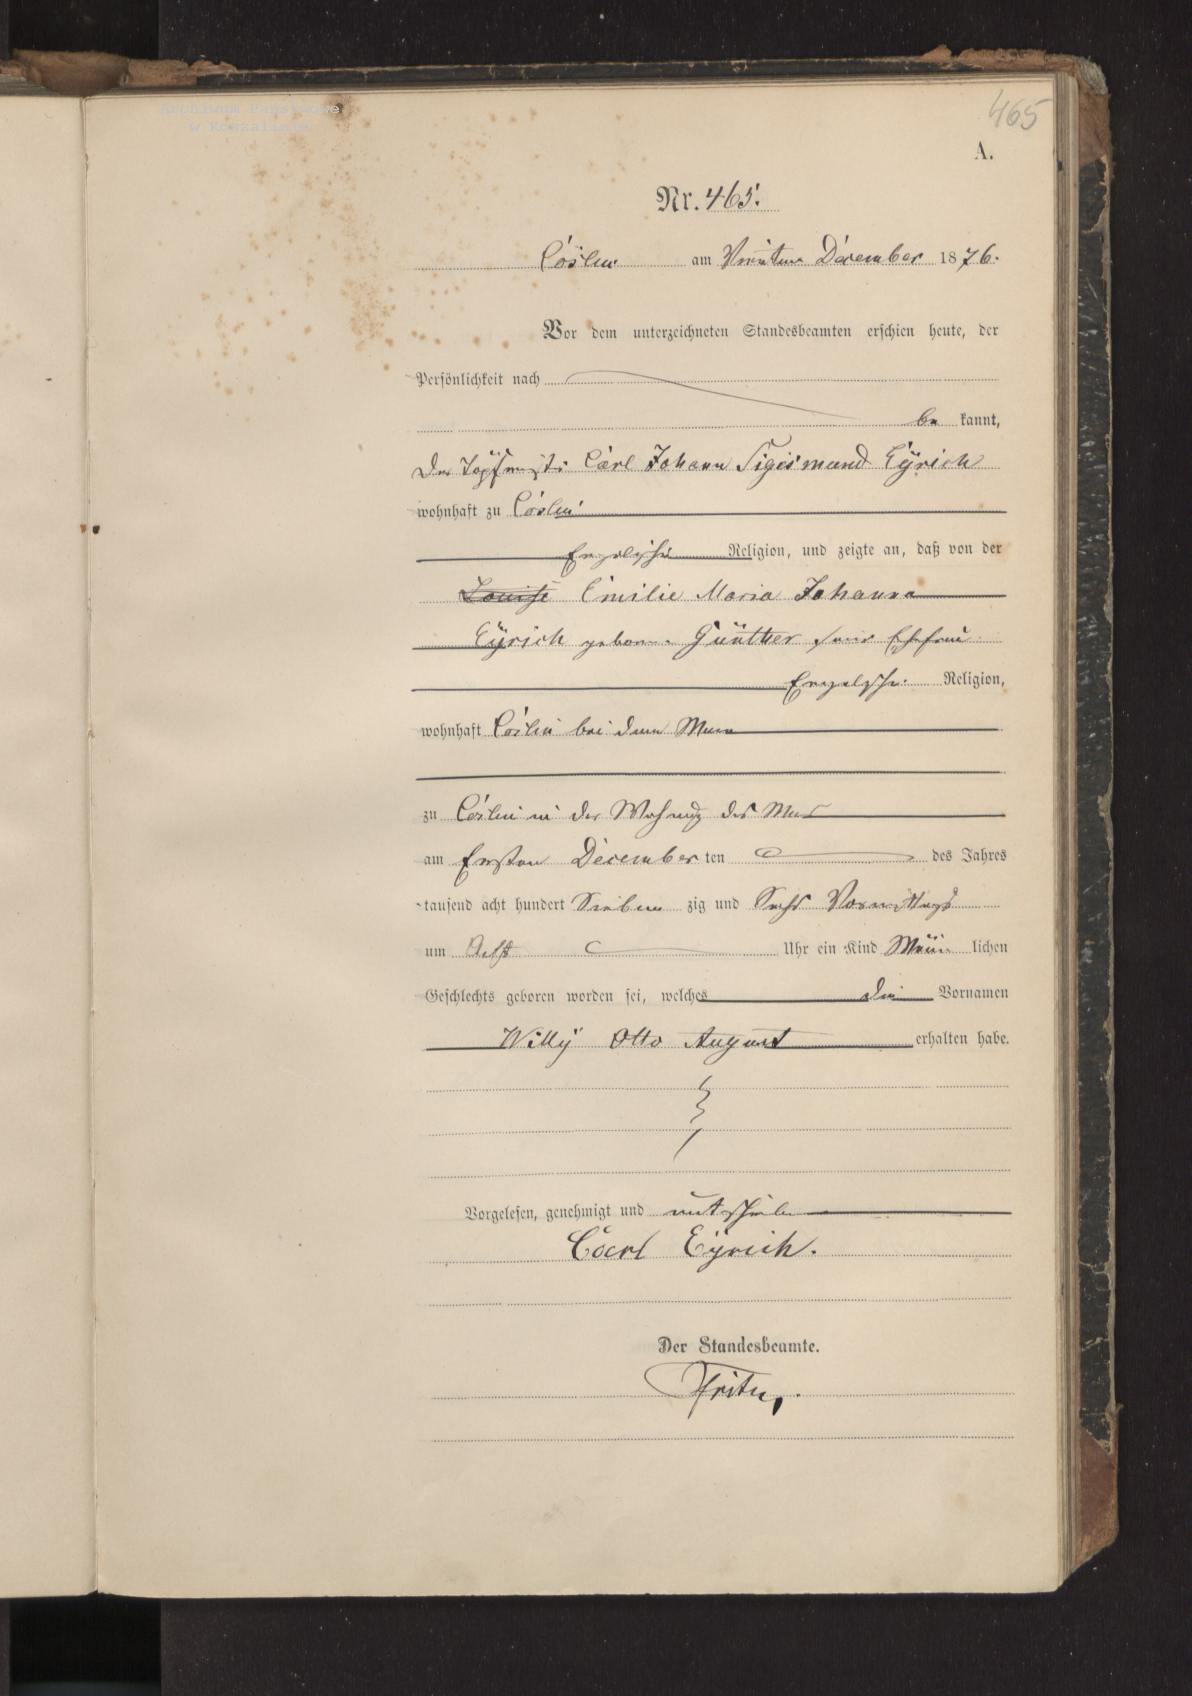 Archiwum Państwowe
w Koszalinie
465
A.
Nr. 465.
Cöslin am Vierten December 1876.
Vor dem unterzeichneten Standesbeamten erschien heute, der
Persönlichkeit nach
be kannt,
Der Carl Johann Sigismund Eÿrich
wohnhaft zu Cöslin
Evgelischer Religion, und zeigte an, daß von der
Louise Emilie Maria Johanna
Eÿrich geborne Günther seine Ehefrau
Evgelischer Religion,
wohnhaft Cöslin bei dem Mann
zu Cöslin in der Wohnung des
am Ersten December ten des Jahres
tausend acht hundert Sieben zig und Sechs Vormittags
um Acht Uhr ein Kind Männ lichen
Geschlechts geboren worden sei, welches die Vornamen
Willÿ Otto August erhalten habe.
Vorgelesen, genehmigt und unterschrieben
Carl Eÿrich.
Der Standesbeamte.